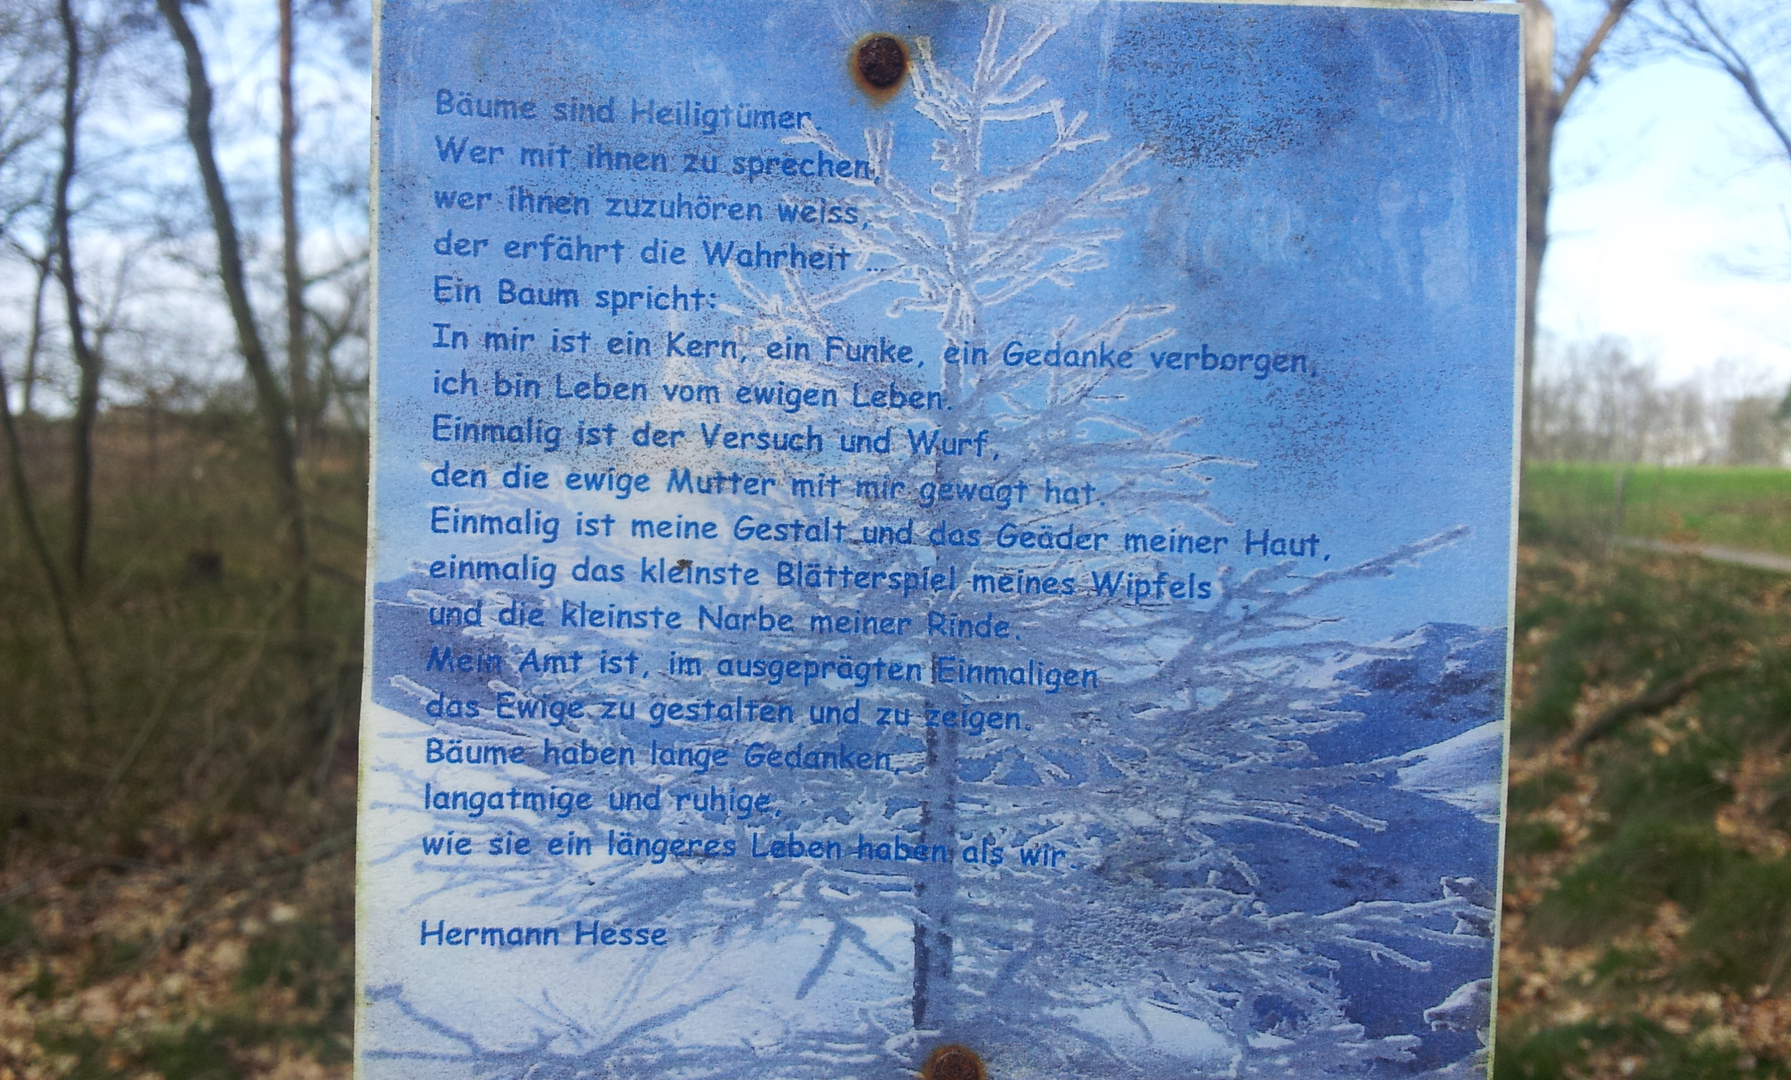 Bäume sind Heiligtümer.
Wer mit ihnen zu sprechen,
wer ihnen zuzuhören weiss,
der erfährt die Wahrheit ...
Ein Baum spricht:
In mir ist ein Kern, ein Funke, ein Gedanke verborgen,
ich bin Leben vom ewigen Leben.
Einmalig ist der Versuch und Wurf,
den die ewige Mutter mit mir gewagt hat.
Einmalig ist meine Gestalt und das Geäder meiner Haut,
einmalig das kleinste Blätterspiel meines Wipfels
und die kleinste Narbe meiner Rinde.
Mein Amt ist, im ausgeprägten Einmaligen
das Ewige zu gestalten und zu zeigen.
Bäume haben lange Gedanken,
langatmige und ruhige,
wie sie ein längeres Leben haben als wir.
Hermann Hesse